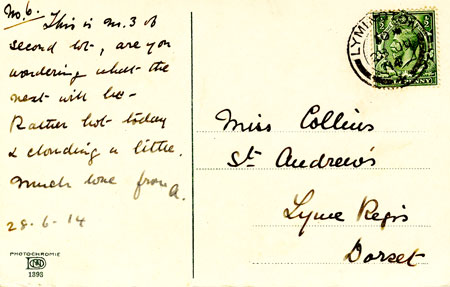 No. 6.
This is no. 3 of
second lot, are you
wondering what the
next will be -
Rather hot today
& clouding a little.
Much love from A.
28-6-14
PHOTOCHROMIE
1393
LYMINGTON
Miss Collins
St. Andrew's
Lyme Regis
Dorset